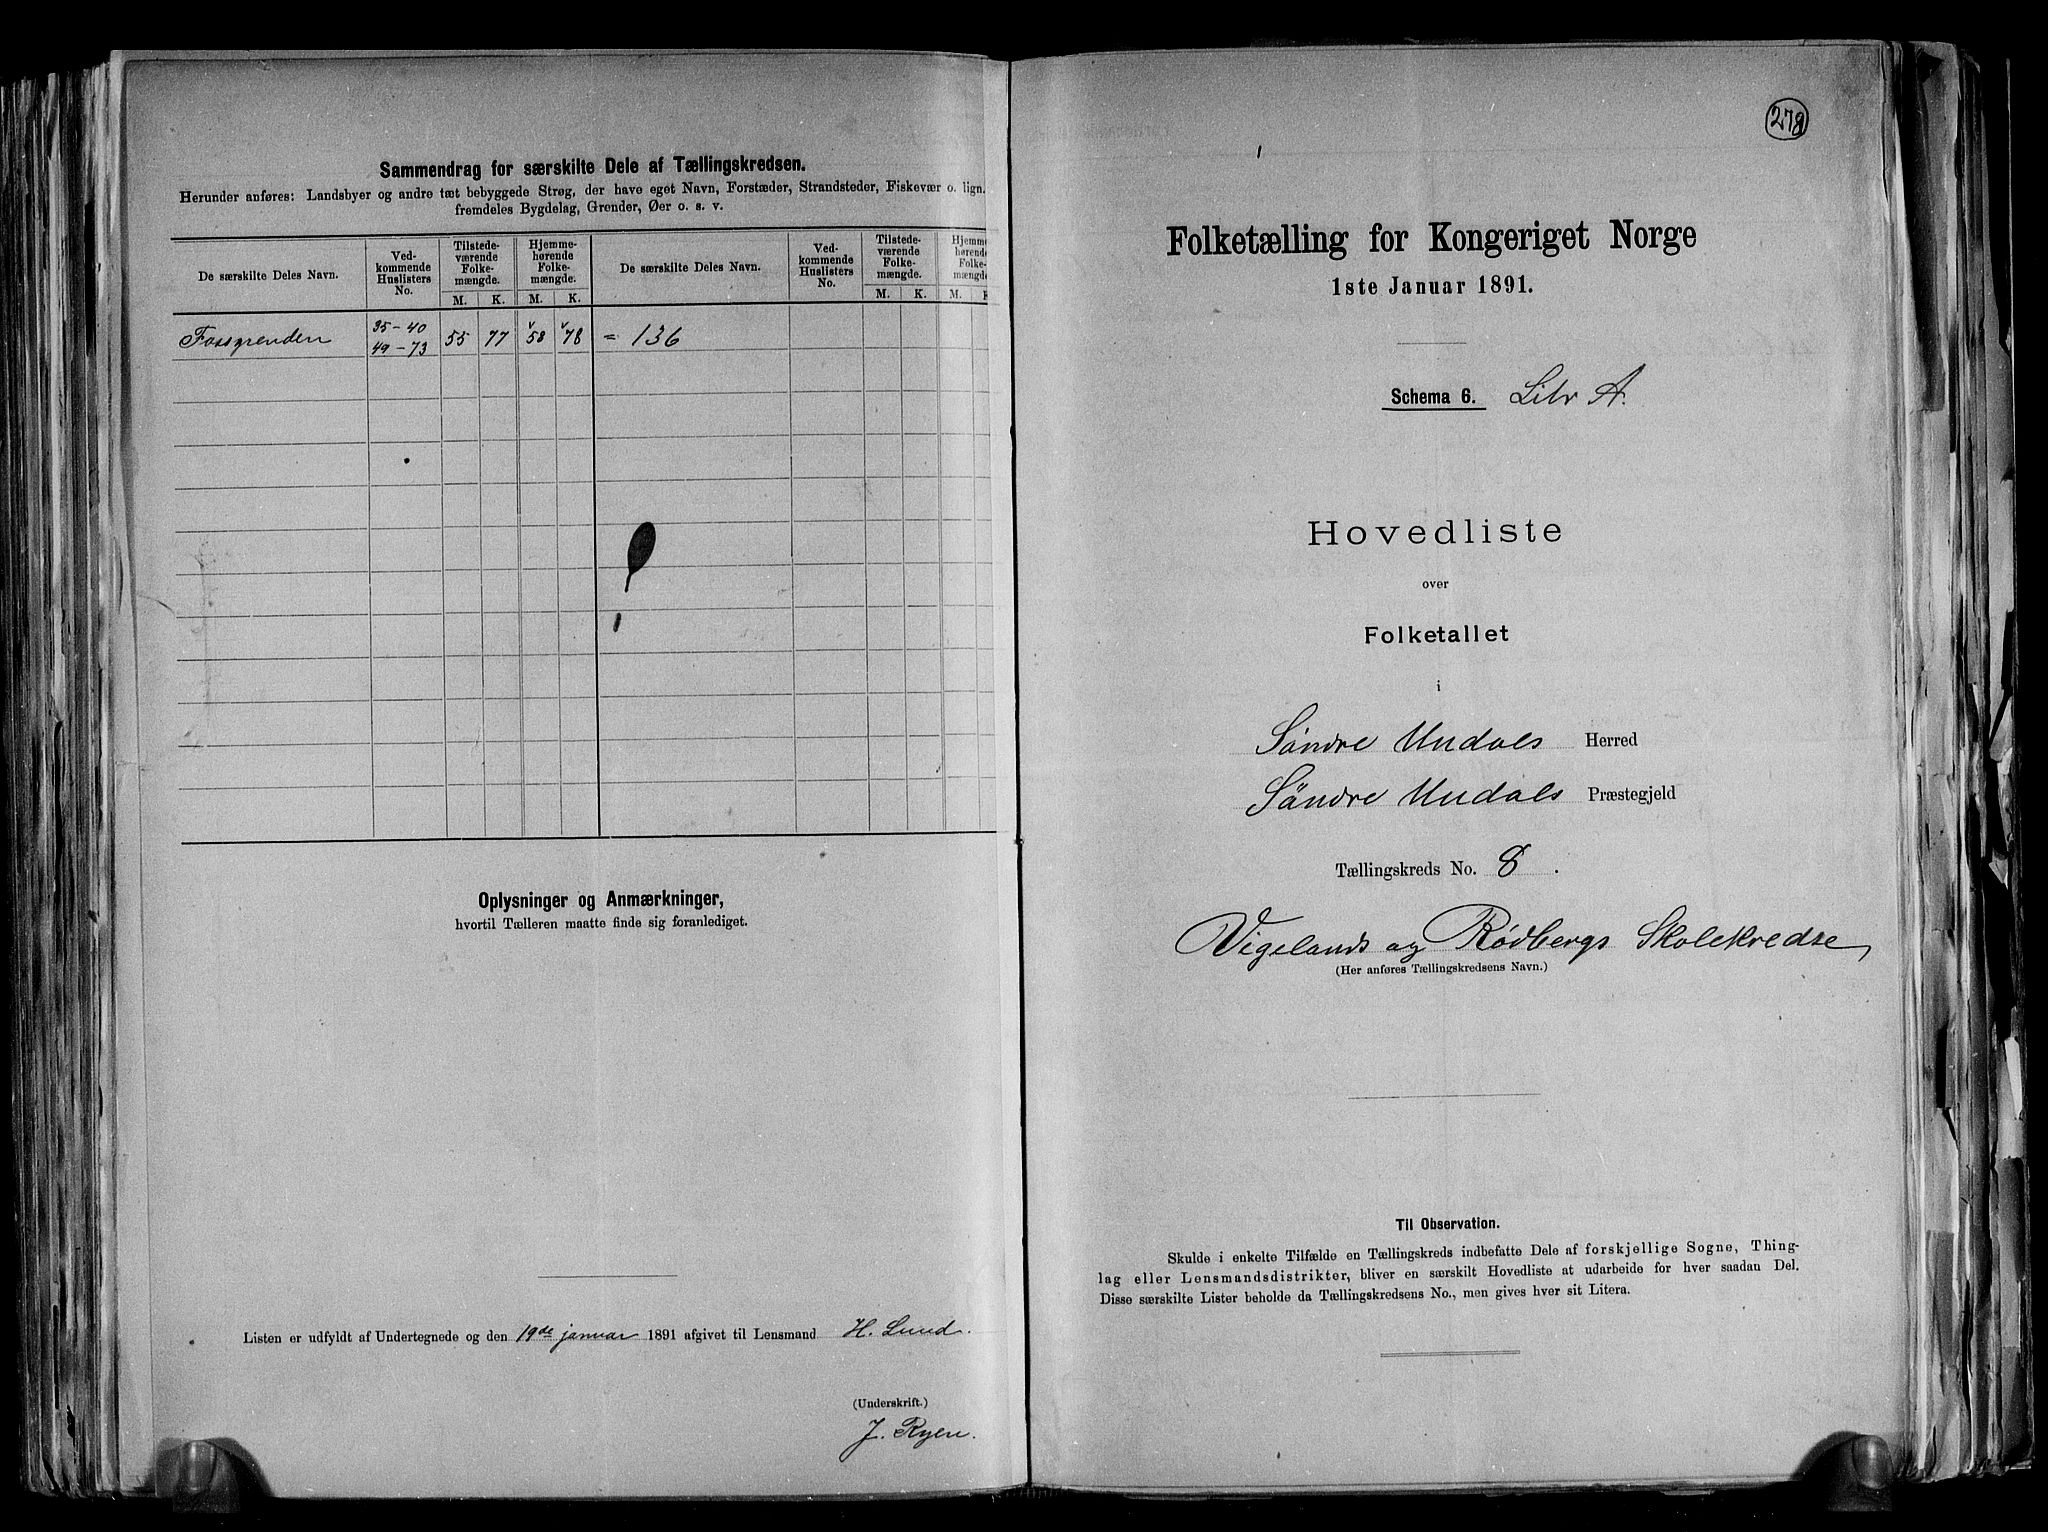 Sammendrag for særskilte Dele af Tællingskredsen.
Herunder anføres: Landsbyer og andre tæt bebyggede Strøg, der have eget Navn, Forstæder, Strandsteder, Fiskevær o. lign.
fremdeles Bygdelag, Grender, Øer o. s. v.
De særskilte Deles Navn. Ved-kommende Huslisters No. Tilstede-værende Folke-mængde. Hjemme-hørende Folke-mængde. De særskilte Deles Navn. Ved-kommende Huslisters No. Tilstede-værende Folke-mængde. Hjemme-hørende Folke-mængde
M. K. M. K. M. K. M. K
Fossgrenden 35-40 49-73 55 77 58 78 = 136
Oplysninger og Anmærkninger,
hvortil Tælleren maatte finde sig foranlediget.
Listen er udfyldt af Undertegnede og den 19de januar 1891 afgivet til Lensmand H. Lund.
(Underskrift.)
J. Ryen.
278
Folketælling for Kongeriget Norge
1ste Januar 1891.
Schema 6. Litr A.
Hovedliste
over
Folketallet
i
Søndre Undals Herred
Søndre Undals Præstegjeld
Tællingskreds No. 8.
Vigelands og Rødbergs Skolekredse
(Her anføres Tællingskredsens Navn.)
Til Observation.
Skulde i enkelte Tilfælde en Tællingskreds indbefatte Dele af forskjellige Sogne, Thing-
lag eller Lensmandsdistrikter, bliver en særskilt Hovedliste at udarbeide for hver saadan Del.
Disse særskilte Lister beholde da Tællingskredsens No., men gives hver sit Litera.